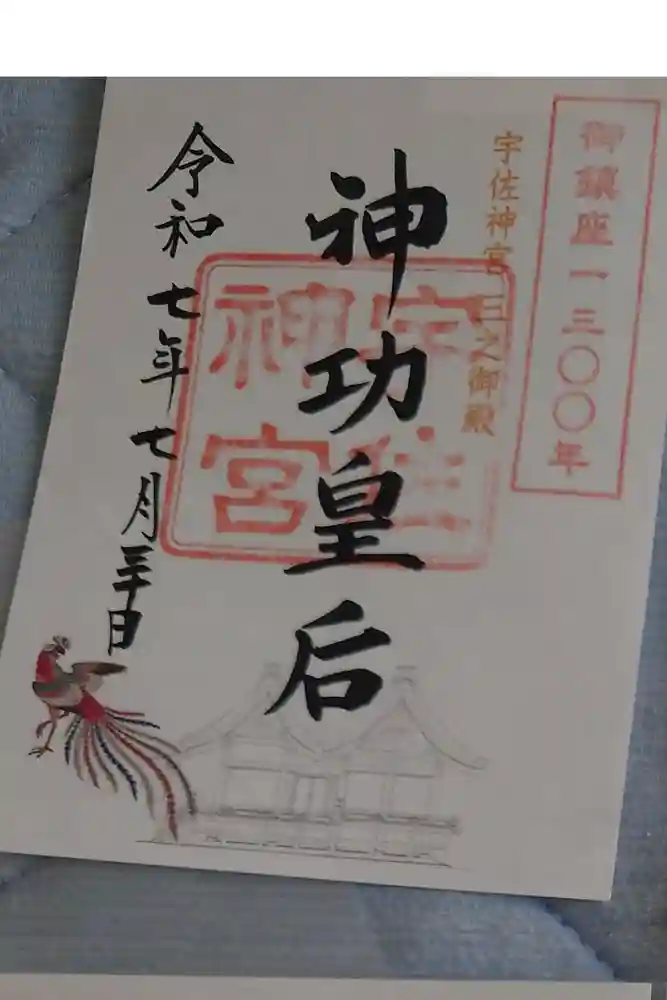 御鎮座一三〇〇年
宇佐神宮 三之御殿
神功皇后
宇佐
神宮
令和七年七月三十日